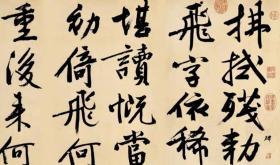 拂拭殘勅
飛字依稀
堪讀慨當
初倚飛何
重後來何